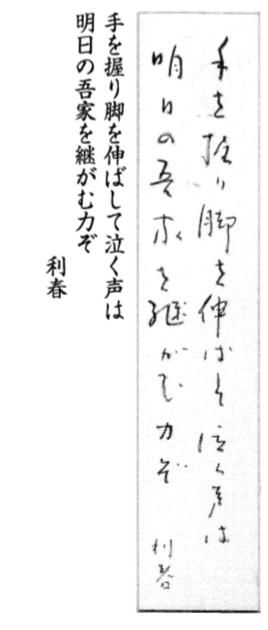 手を握り脚を伸ばして泣く声は
明日の吾家を継がむ力ぞ
利春
手を握り脚を伸ばして泣く声は
明日の吾家を継がむ力ぞ 利春